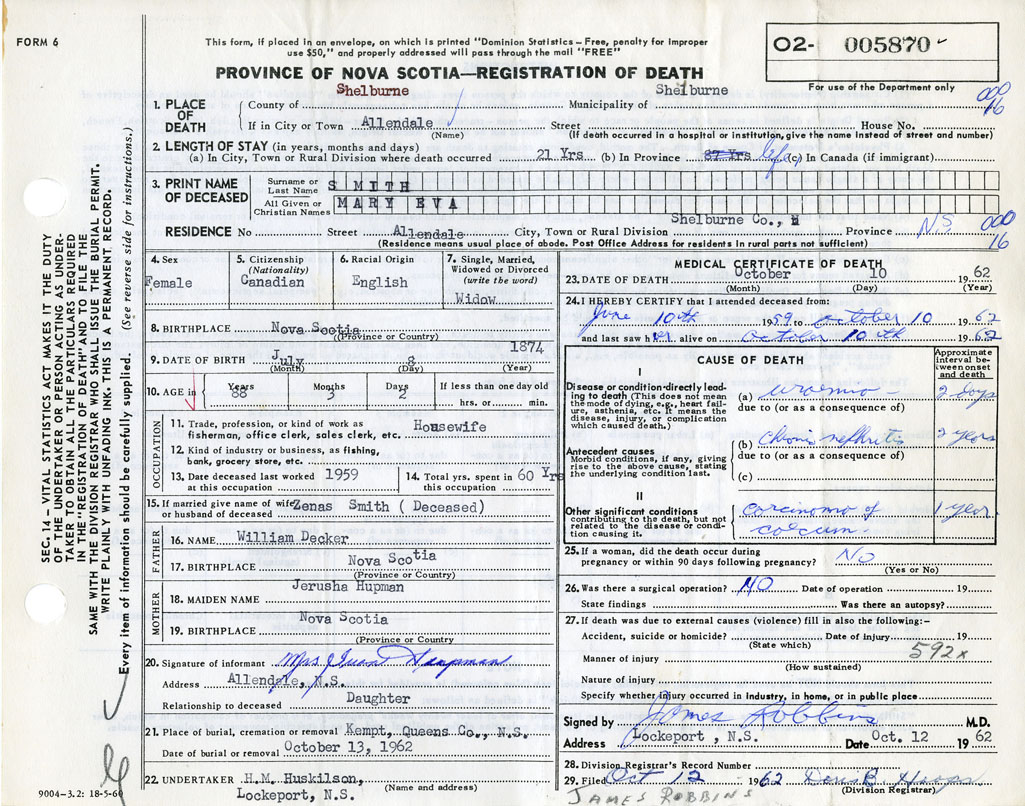 FORM 6
This form, if placed in an envelope, on which is printed "Dominion Statistics – Free, penalty for improper
use $50," and properly addressed will pass through the mail "FREE"
02- 005870
PROVINCE OF NOVA SCOTIA—REGISTRATION OF DEATH
For use of the Department only
SEC. 14 – VITAL STATISTICS ACT MAKES IT THE DUTY
OF THE UNDERTAKER OR PERSON ACTING AS UNDER-
TAKER TO OBTAIN ALL THE PARTICULARS REQUIRED
IN THE "REGISTRATION OF DEATH" AND TO FILE THE
SAME WITH THE DIVISION REGISTRAR WHO SHALL ISSUE THE BURIAL PERMIT.
WRITE PLAINLY WITH UNFADING INK–THIS IS A PERMANENT RECORD.
Every item of information should be carefully supplied. (See reverse side for instructions.)
1. PLACE OF DEATH
County of Shelburne Municipality of Shelburne
000
16
If in City or Town Allendale Street House No.
(Name) (If death occurred in a hospital or institution, give the name instead of street and number)
2. LENGTH OF STAY (in years, months and days)
(a) In City, Town or Rural Division where death occurred 21 Yrs (b) In Province 87 Yrs life (c) In Canada (if immigrant)
3. PRINT NAME OF DECEASED
Surname or Last Name SMITH
All Given or Christian Names MARY EVA
RESIDENCE No Street Allendale City, Town or Rural Division Shelburne Co., Province N.S.
000
16
(Residence means usual place of abode. Post Office Address for residents in rural parts not sufficient)
4. Sex
Female
5. Citizenship
(Nationality)
Canadian
6. Racial Origin
English
7. Single, Married,
Widowed or Divorced
(write the word)
Widow
8. BIRTHPLACE Nova Scotia
(Province or Country)
9. DATE OF BIRTH July 8 1874
(Month) (Day) (Year)
10. AGE in Years 88 Months 3 Days 2 If less than one day old
hrs. or min.
OCCUPATION
11. Trade, profession, or kind of work as
fisherman, office clerk, sales clerk, etc. Housewife
12. Kind of industry or business, as fishing,
bank, grocery store, etc.
13. Date deceased last worked
at this occupation 1959
14. Total yrs. spent in
this occupation 60 Yrs
15. If married give name of wife
or husband of deceased Zenas Smith ( Deceased)
FATHER
16. NAME William Decker
17. BIRTHPLACE Nova Scotia
(Province or Country)
MOTHER
18. MAIDEN NAME Jerusha Hupman
19. BIRTHPLACE Nova Scotia
(Province or Country
20. Signature of informant Mrs. Hupman
Address Allendale, N.S.
Relationship to deceased Daughter
21. Place of burial, cremation or removal Kempt, Queens Co., N.S.
Date of burial or removal October 13, 1962
22. UNDERTAKER H.M. Huskilson,
(Name and address)
Lockeport, N.S.
9004-3.2: 18-5-60
MEDICAL CERTIFICATE OF DEATH
23. DATE OF DEATH October 10 1962
(Month) (Day) (Year)
24. I HEREBY CERTIFY that I attended deceased from:
June 10th 1959 to October 10 1962
and last saw her alive on October 10th 1962
CAUSE OF DEATH
Approximate
interval be-
tween onset
and death
I
Disease or condition directly lead-
ing to death (This does not mean
the mode of dying, e.g., heart fail-
ure, asthenia, etc. It means the
disease, injury, or complication
which caused death.)
(a) uraemia 2 days
due to (or as a consequence of)
Antecedent causes
Morbid conditions, if any, giving
rise to the above cause, stating
the underlying condition last.
(b) Chronic nephritis 2 years
due to (or as a consequence of)
(c)
II
Other significant conditions
contributing to the death, but not
related to the disease or condi-
tion causing it.
carcinoma of 1 year
coecum.
25. If a woman, did the death occur during
pregnancy or within 90 days following pregnancy? No
(Yes or No)
26. Was there a surgical operation? NO Date of operation 19
State findings Was there an autopsy?
27. If death was due to external causes (violence) fill in also the following:–
Accident, suicide or homicide? Date of injury 19
(State which)
592x
Manner of injury
(How sustained)
Nature of injury
Specify whether injury occurred in industry, in home, or in public place
Signed by James Robbins M.D.
Address Lockeport, N.S. Date Oct. 12 1962
28. Division Registrar's Record Number
29. Filed Oct 12 1962
(Division Registrar)
JAMES ROBBINS